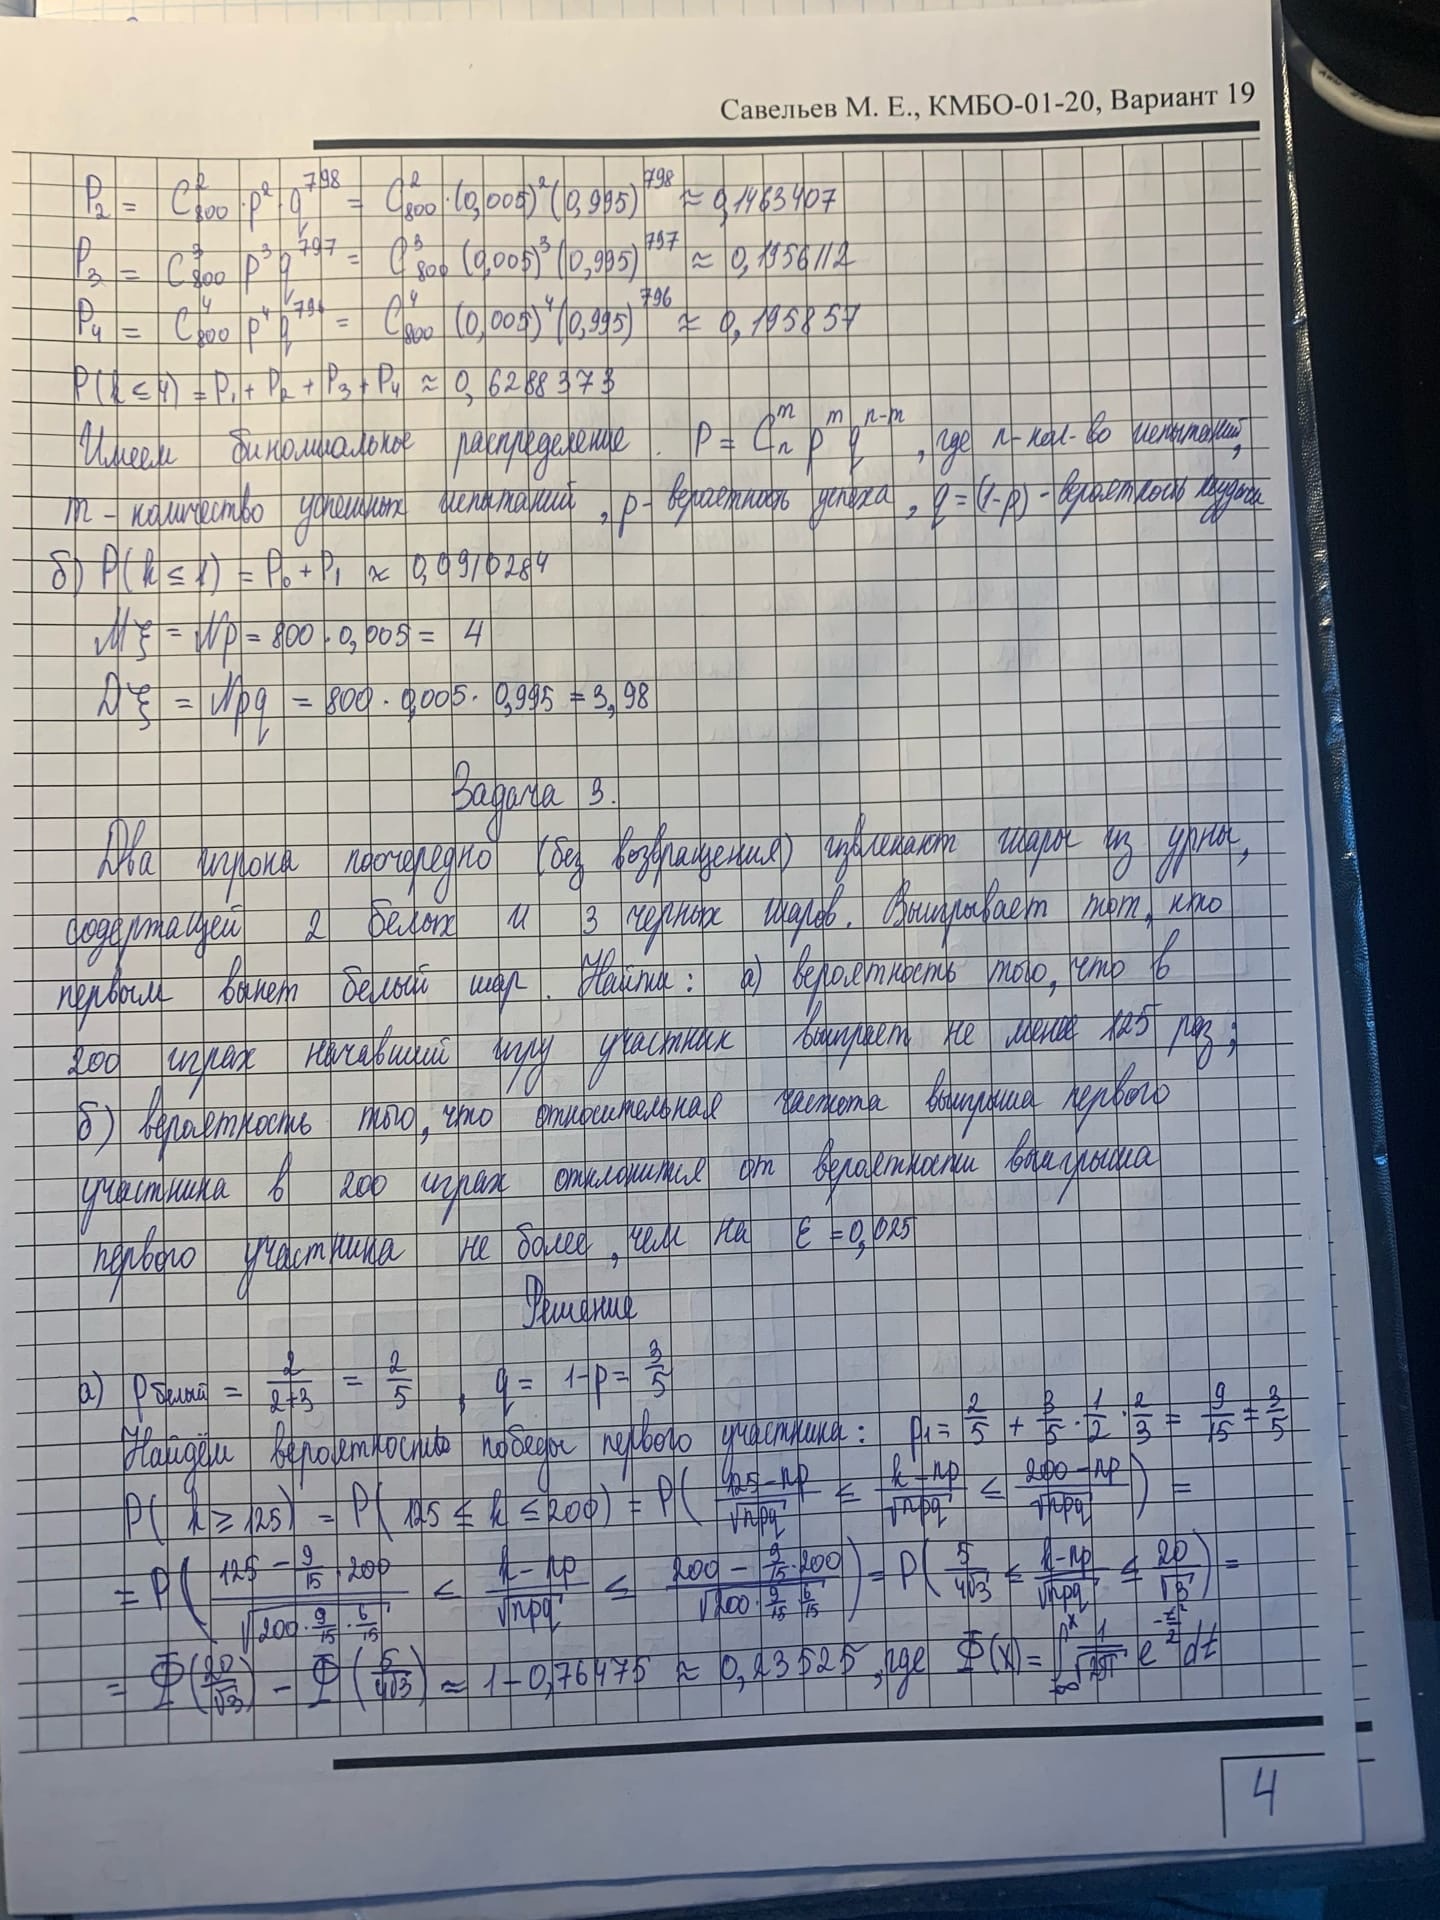 Савельев М. Е., КМБО-01-20, Вариант 19
P₂ = C²₈₀₀ · p² · q⁷⁹⁸ = C²₈₀₀ · (0,005)² (0,995)⁷⁹⁸ ≈ 0,1463407
P₃ = C³₈₀₀ p³ q⁷⁹⁷ = C³₈₀₀ (0,005)³ (0,995)⁷⁹⁷ ≈ 0,1956112
P₄ = C⁴₈₀₀ p⁴ q⁷⁹⁶ = C⁴₈₀₀ (0,005)⁴ (0,995)⁷⁹⁶ ≈ 0,195857
P(k ≤ 4) = P₁ + P₂ + P₃ + P₄ ≈ 0,6288373
Имеем биномиальное распределение. P = Cₙᵐ pᵐ qⁿ⁻ᵐ, где n-кол-во испытаний,
m - количество успешных испытаний, p- вероятность успеха, q = (1-p) - вероятность неудачи
б) P(k ≤ 1) = P₀ + P₁ ≈ 0,0910284
Mξ = Np = 800 · 0,005 = 4
Dξ = Npq = 800 · 0,005 · 0,995 = 3,98
Задача 3.
Два игрока поочередно (без возвращения) извлекают шары из урны,
содержащей 2 белых и 3 черных шаров. Выигрывает тот, кто
первым вынет белый шар. Найти: а) вероятность того, что в
200 играх начавший игру участник выиграет не менее 125 раз;
б) вероятность того, что относительная частота выигрыша первого
участника в 200 играх отклонится от вероятности выигрыша
первого участника не более, чем на ε = 0,025
Решение
а) P белый = 2/(2+3) = 2/5, q = 1-p = 3/5
Найдём вероятность победы первого участника: p₁ = 2/5 + 3/5 · 1/2 · 2/3 = 9/15 = 3/5
P(k ≥ 125) = P(125 ≤ k ≤ 200) = P((125-np)/√npq ≤ (k-np)/√npq ≤ (200-np)/√npq) =
= P((125 - 9/15 · 200)/√(200 · 9/15 · 6/15) ≤ (k-np)/√npq ≤ (200 - 9/15 · 200)/√(200 · 9/15 · 6/15)) = P(5/4√3 ≤ (k-np)/√npq ≤ 20/√3) =
= Φ(20/√3) - Φ(5/4√3) ≈ 1 - 0,76475 ≈ 0,23525, где Φ(x) = ∫₋∞ˣ 1/√2π e^(-x²/2) dt
4